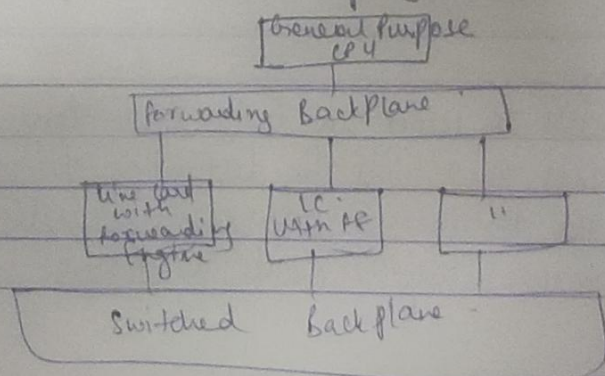 General Purpose
CPU
Forwarding BackPlane
Line Card
with
forwarding
Engine
LC
with FE
"
Switched Backplane